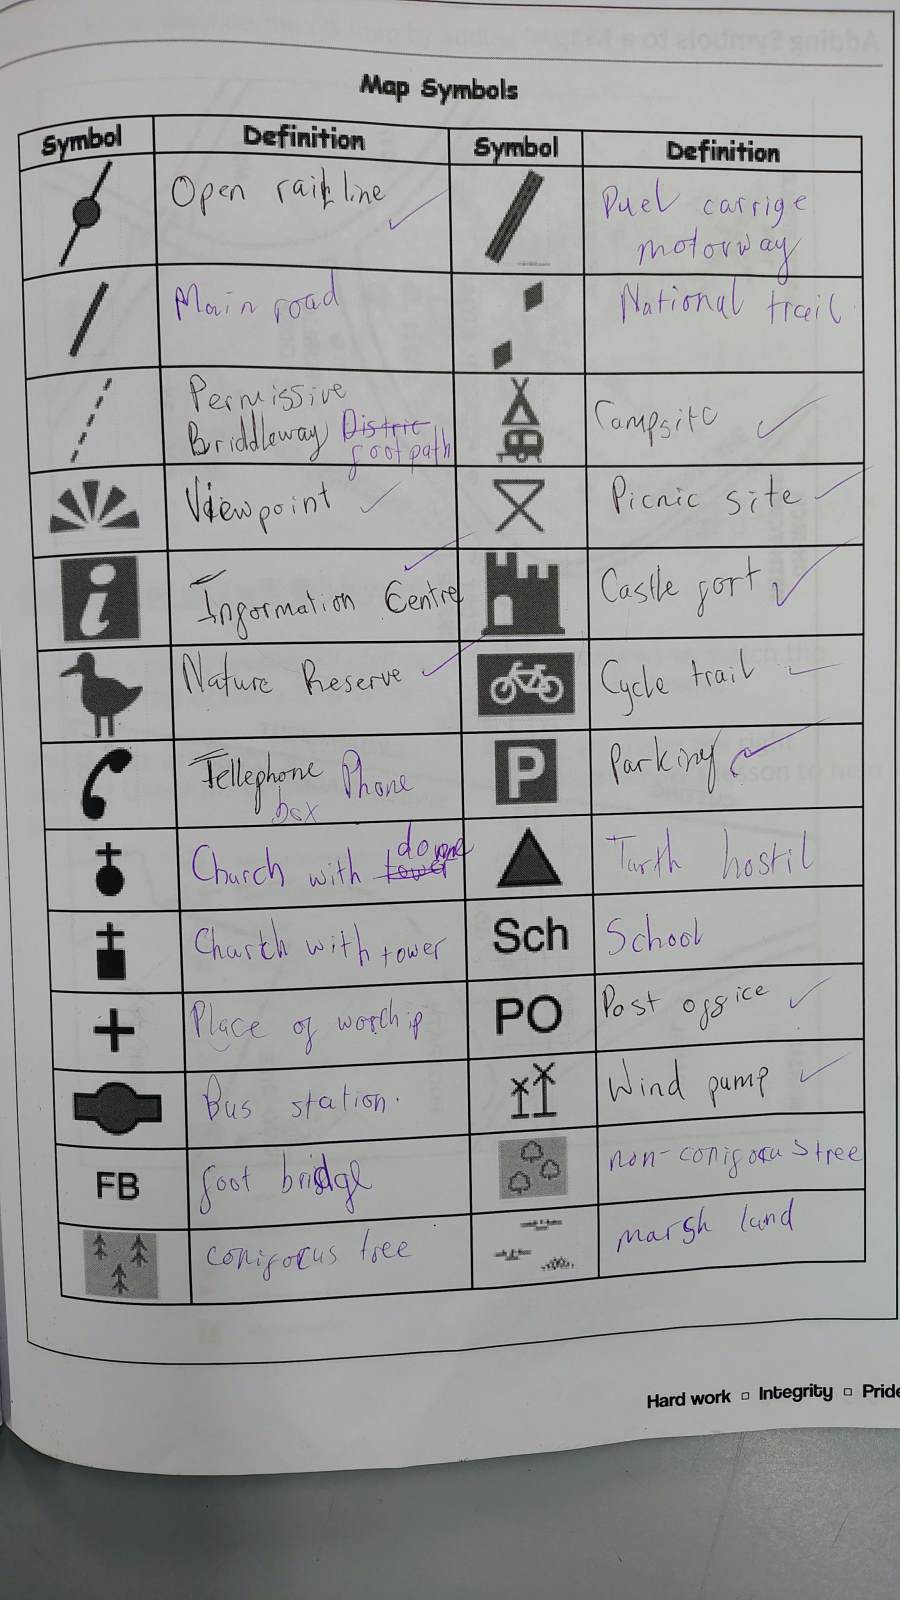 Map Symbols
Symbol Definition Symbol Definition
Open rail line
Duel carrige
motorway
Main road
National trail
Permissive
Briddleway Distric
footpath
Campsite
Viewpoint
Picnic site
i
Information Centre
Castle fort
Nature Reserve
Cycle trail
Tellephone Phone
box
P
Parking
Church with tower dome
hostil
Church with tower
Sch
School
Place of worchip
PO
Post office
Bus station.
Wind pump
FB
foot bridge
non-coniforus tree
coniforcus tree
marsh land
Hard work Integrity Pride